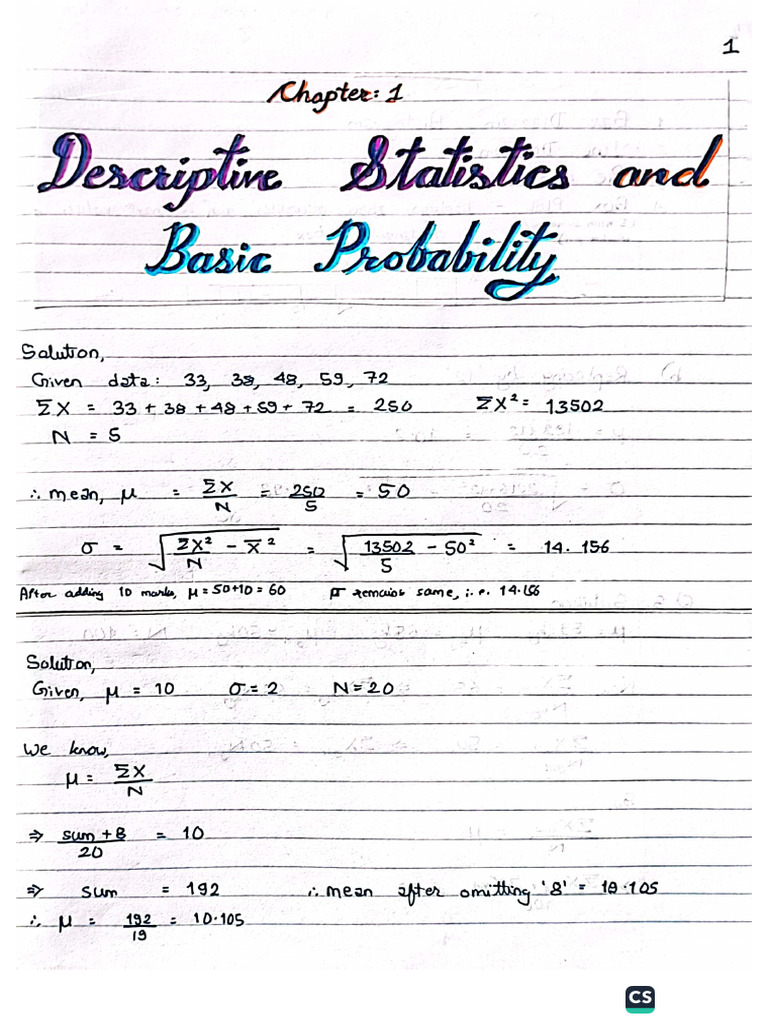 1
Chapter: 1
Descriptive Statistics and
Basic Probability
Solution,
Given data: 33, 38, 48, 59, 72
ΣX = 33 + 38 + 48 + 59 + 72 = 250 ΣX² = 13502
N = 5
∴ mean, μ = ΣX/N = 250/5 = 50
σ = √(ΣX²/N - X̄²) = √(13502/5 - 50²) = 14.156
After adding 10 marks, μ = 50+10 = 60 σ remains same, i.e. 14.156
Solution,
Given, μ = 10 σ = 2 N = 20
We know,
μ = ΣX/N
⇒ sum + 8/20 = 10
⇒ sum = 192 ∴ mean after omitting '8' = 10.105
∴ μ = 192/19 = 10.105
CS